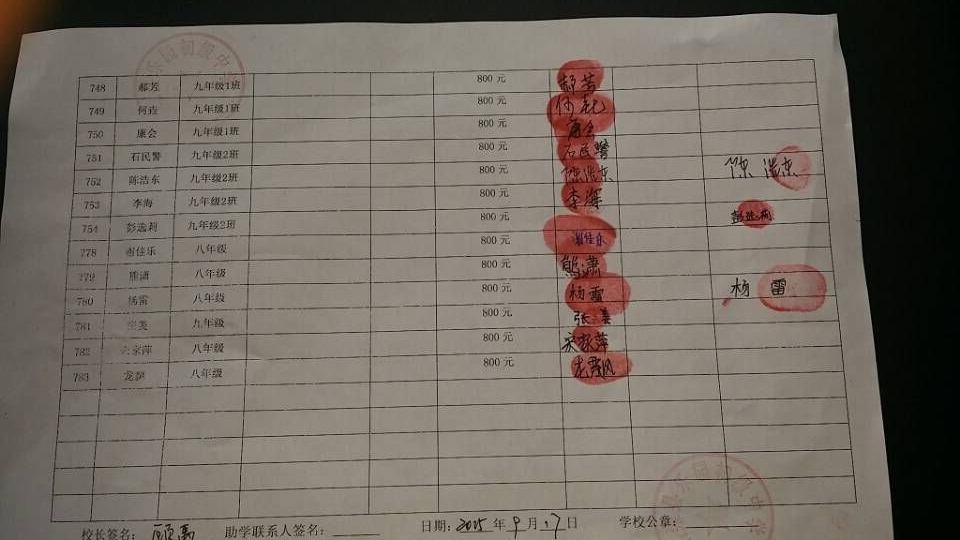 748 郝芳 九年级1班 800 元 郝芳
749 何垚 九年级1班 800 元 何垚
750 康会 九年级1班 800 元 康会
751 石民警 九年级2班 800 元 石民警
752 陈浩东 九年级2班 800 元 陈浩东 陈浩东
753 李海 九年级2班 800 元 李海
754 彭逸莉 九年级2班 800 元
778 谢佳乐 八年级 800 元 谢佳乐
779 熊潇 八年级 800 元 熊潇
780 杨雷 八年级 800 元 杨雷 杨雷
781 八年级 800 元 张美
782 八年级 800 元 宋家萍
783 八年级 800 元
校长签名： 助学联系人签名： 日期：2015 年 9 月 17 日 学校公章：